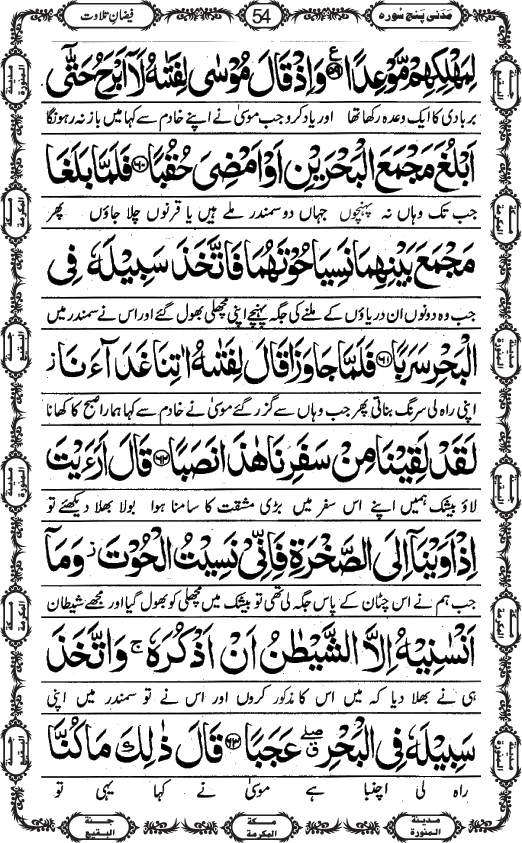 مَدَنی پنج سُورہ
54
فیضانِ تلاوت
لِمَهْلِكِهِمْ مَّوْعِدًا ﴿۵۹﴾ وَ اِذْ قَالَ مُوْسٰى لِفَتٰىهُ لَاۤ اَبْرَحُ حَتّٰۤى
بربادی کا ایک وعدہ رکھا تھا اور یاد کرو جب موسیٰ نے اپنے خادم سے کہا میں باز نہ رہونگا
اَبْلُغَ مَجْمَعَ الْبَحْرَیْنِ اَوْ اَمْضِیَ حُقُبًا ﴿۶۰﴾ فَلَمَّا بَلَغَا
جب تک وہاں نہ پہنچوں جہاں دو سمندر ملے ہیں یا قرنوں چلا جاؤں پھر
مَجْمَعَ بَیْنِهِمَا نَسِیَا حُوْتَهُمَا فَاتَّخَذَ سَبِیْلَهٗ فِی
جب وہ دونوں ان دریاؤں کے ملنے کی جگہ پہنچے اپنی مچھلی بھول گئے اور اس نے سمندر میں
الْبَحْرِ سَرَبًا ﴿۶۱﴾ فَلَمَّا جَاوَزَا قَالَ لِفَتٰىهُ اٰتِنَا غَدَآءَنَا ز
اپنی راہ لی سرنگ بناتی پھر جب وہاں سے گزر گئے موسیٰ نے خادم سے کہا ہمارا صبح کا کھانا
لَقَدْ لَقِیْنَا مِنْ سَفَرِنَا هٰذَا نَصَبًا ﴿۶۲﴾ قَالَ اَرَءَیْتَ
لاؤ بیشک ہمیں اپنے اس سفر میں بڑی مشقت کا سامنا ہوا بولا بھلا دیکھئے تو
اِذْ اَوَیْنَاۤ اِلَى الصَّخْرَةِ فَاِنِّیْ نَسِیْتُ الْحُوْتَ ز وَ مَاۤ
جب ہم نے اس چٹان کے پاس جگہ لی تھی تو بیشک میں مچھلی کو بھول گیا اور مجھے شیطان
اَنْسٰىنِیْهُ اِلَّا الشَّیْطٰنُ اَنْ اَذْكُرَهٗ ج وَ اتَّخَذَ
ہی نے بھلا دیا کہ میں اس کا مذکور کروں اور اس نے تو سمندر میں اپنی
سَبِیْلَهٗ فِی الْبَحْرِ صلے عَجَبًا ﴿۶۳﴾ قَالَ ذٰلِكَ مَا كُنَّا
راہ لی اچنبا ہے موسیٰ نے کہا یہی تو
مدینۃ المنورۃ
مکۃ المکرمۃ
جنۃ البقیع